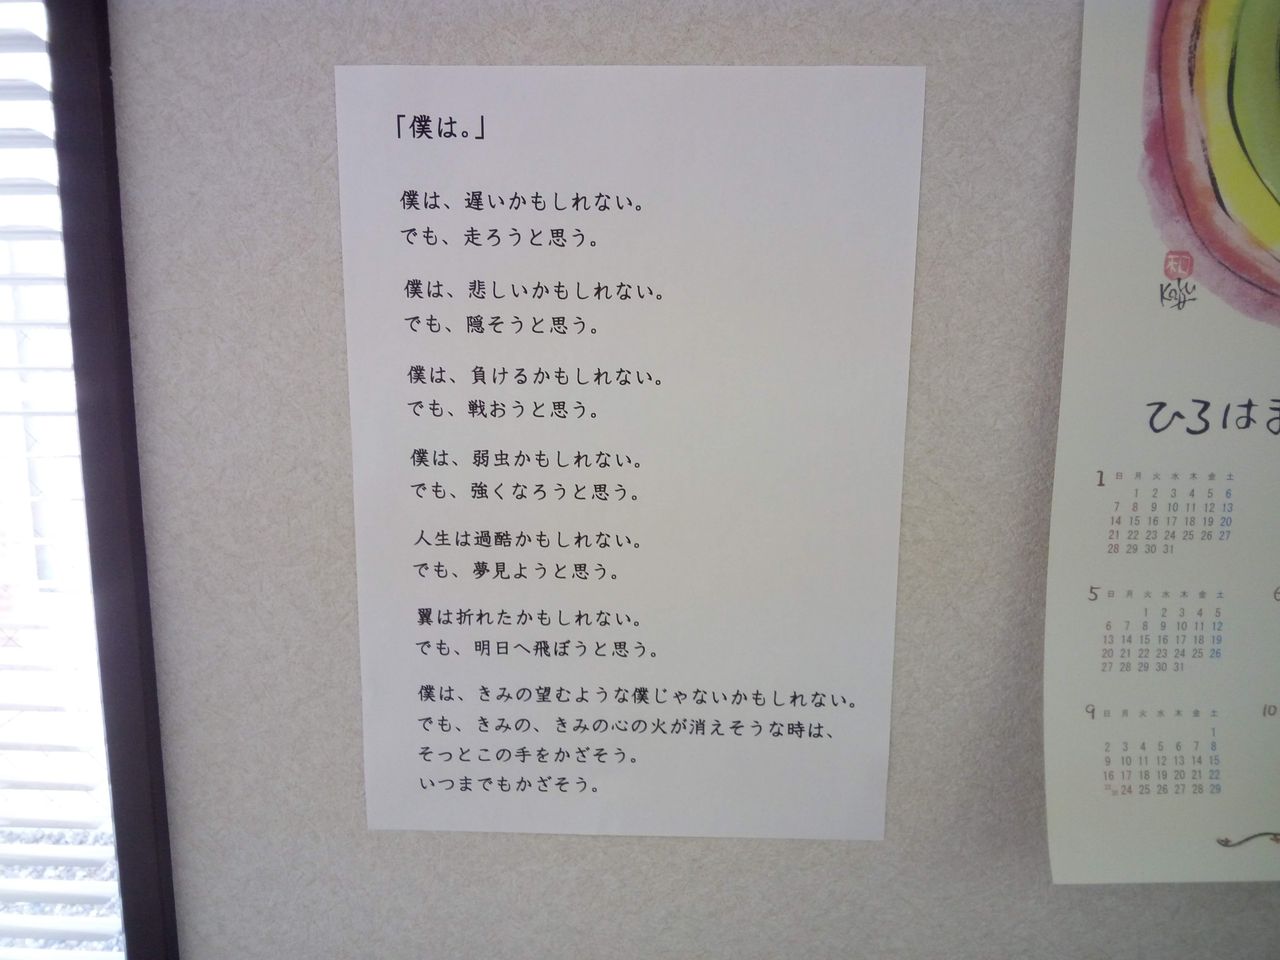 「僕は。」
僕は、遅いかもしれない。
でも、走ろうと思う。
僕は、悲しいかもしれない。
でも、隠そうと思う。
僕は、負けるかもしれない。
でも、戦おうと思う。
僕は、弱虫かもしれない。
でも、強くなろうと思う。
人生は過酷かもしれない。
でも、夢見ようと思う。
翼は折れたかもしれない。
でも、明日へ飛ぼうと思う。
僕は、きみの望むような僕じゃないかもしれない。
でも、きみの、きみの心の火が消えそうな時は、
そっとこの手をかざそう。
いつまでもかざそう。
和
ひろはま
1
日 月 火 水 木 金 土
1 2 3 4 5 6
7 8 9 10 11 12 13
14 15 16 17 18 19 20
21 22 23 24 25 26 27
28 29 30 31
5
日 月 火 水 木 金 土
1 2 3 4 5
6 7 8 9 10 11 12
13 14 15 16 17 18 19
20 21 22 23 24 25 26
27 28 29 30 31
6
9
日 月 火 水 木 金 土
1
2 3 4 5 6 7 8
9 10 11 12 13 14 15
16 17 18 19 20 21 22
23 30 24 25 26 27 28 29
10